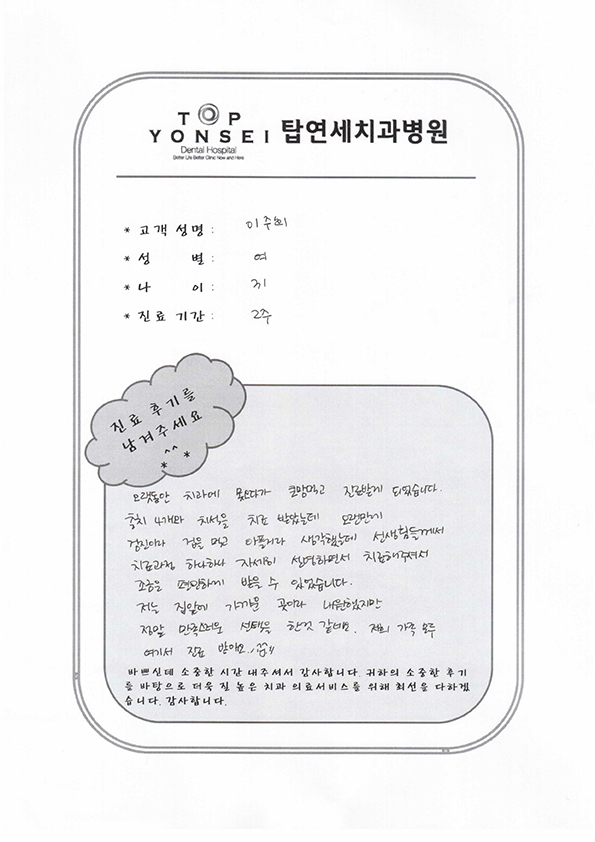 TOP
YONSEI 탑연세치과병원
Dental Hospital
Better Life Better Clinic Now and Here
* 고객 성명 : 이주희
* 성 별 : 여
* 나 이 : 31
* 진료 기간 : 2주
진료 후기를
남겨주세요
^^
* *
오랫동안 치과에 못오다가 큰맘먹고 진료받게 되었습니다.
충치 4개와 치석을 치료 받았는데 오랜만에
검진이라 겁을 먹고 아플거라 생각했는데 선생님들께서
치료과정 하나하나 자세히 설명하면서 치료해주셔서
조금은 편안하게 받을 수 있었습니다.
저는 집앞에 가까운 곳이라 내원했지만
정말 만족스러운 선택을 한것 같네요. 저희 가족 모두
여기서 진료 받아요
바쁘신데 소중한 시간 내주셔서 감사합니다. 귀하의 소중한 후기
를 바탕으로 더욱 질 높은 치과 의료서비스를 위해 최선을 다하겠
습니다. 감사합니다.